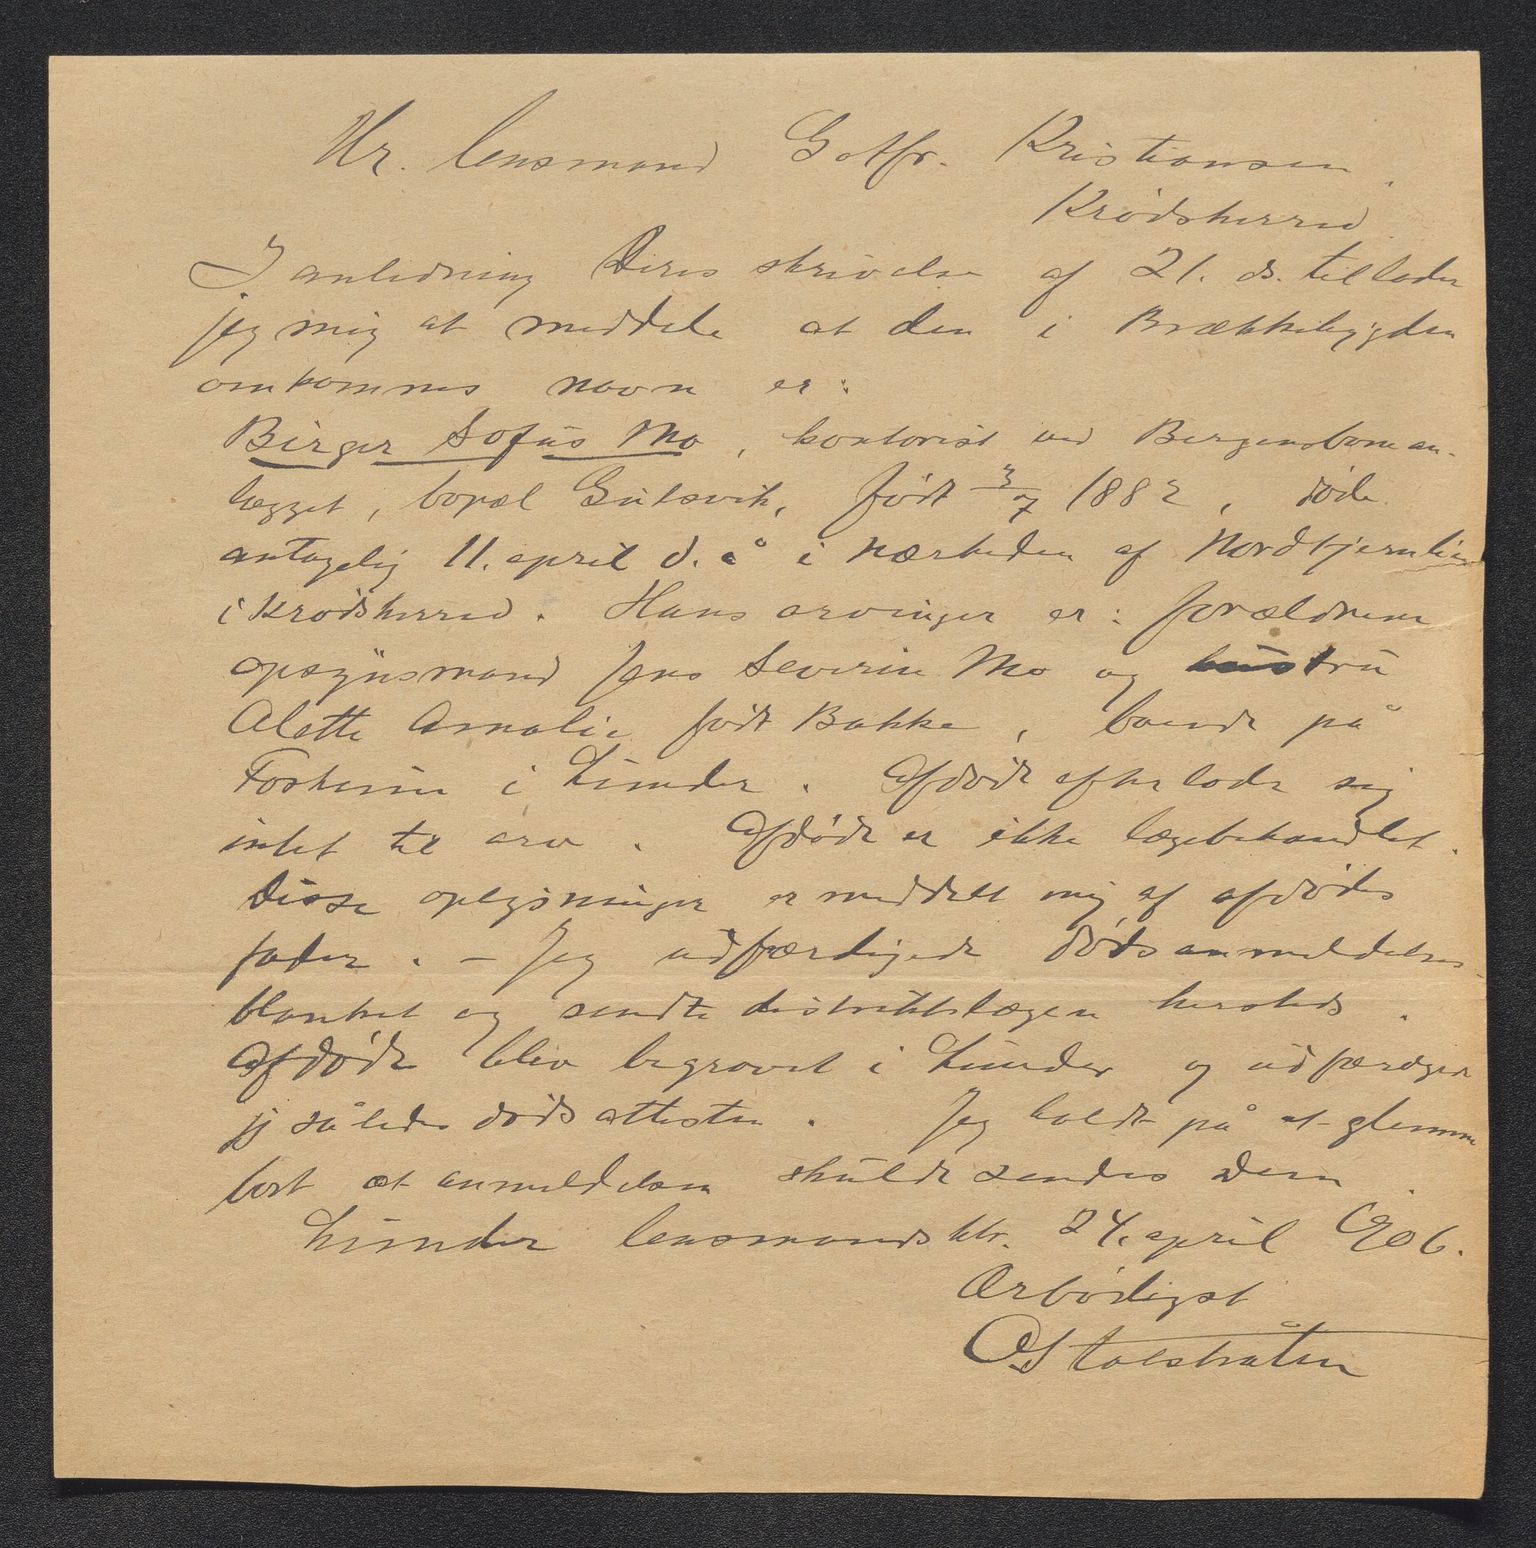 Hr. lensmand Gotfr. Kristiansen.
Krødsherred
I anledning Deres skrivelse af 21. ds. tillader
jeg mig at meddele at den i Brækkebygden
omkomnes navn er:
Birger Sofus Mo, kontorist ved Bergensbanean-
lægget, bopæl Gulsvik, født 3/7 1882, døde
antagelig 11. april d. å i nærheden af Nordtjernlien
i Krødsherred. Hans arvinger er: forældrene
opsynsmand Jens Severin Mo og hustru
Alette Amalie født Bakke, boende på
i Lunder. Afdøde efterlode sig
intet til arv. Afdøde er ikke lægebehandlet.
Disse oplysninger er meddelt mig af afdødes
fader. - Jeg udfærdigede dødsanmeldelses-
blanket og sendte distriktslægen hersteds.
Afdøde blev begravet i Lunder og udfærdiget
jeg således dødsattesten. Jeg holdt på at glemme
bort at anmeldelsen skulde sendes Dem.
Lunder lensmandsktr. 24. april 1906.
Ærbødigst
O Stalsbråten